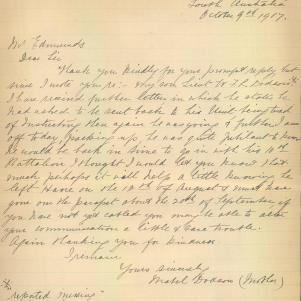 South Australia
October 9th 1917.
Mr Edmunds
Dear Sir
Thank you kindly for your prompt reply but
since I wrote you re:- My son Lieut
I have received further letters in which he states he
had asked to be sent back to his Unit being tired
of Instructing then again he was going further I am
off to day packing up, he was quite jubilant to know
he would be back in time to go in with his 10th
Battalion I thought I would let you know that
much perhaps it will help a little knowing he
left Havre on the 18th of August & must have
gone on the about the 20th of September if
you have not yet cabled you may be able to alter
your communication & little & save trouble.
Again thanking you for kindness
I remain
Yours sincerely
Mabel (Mother)
reported missing"